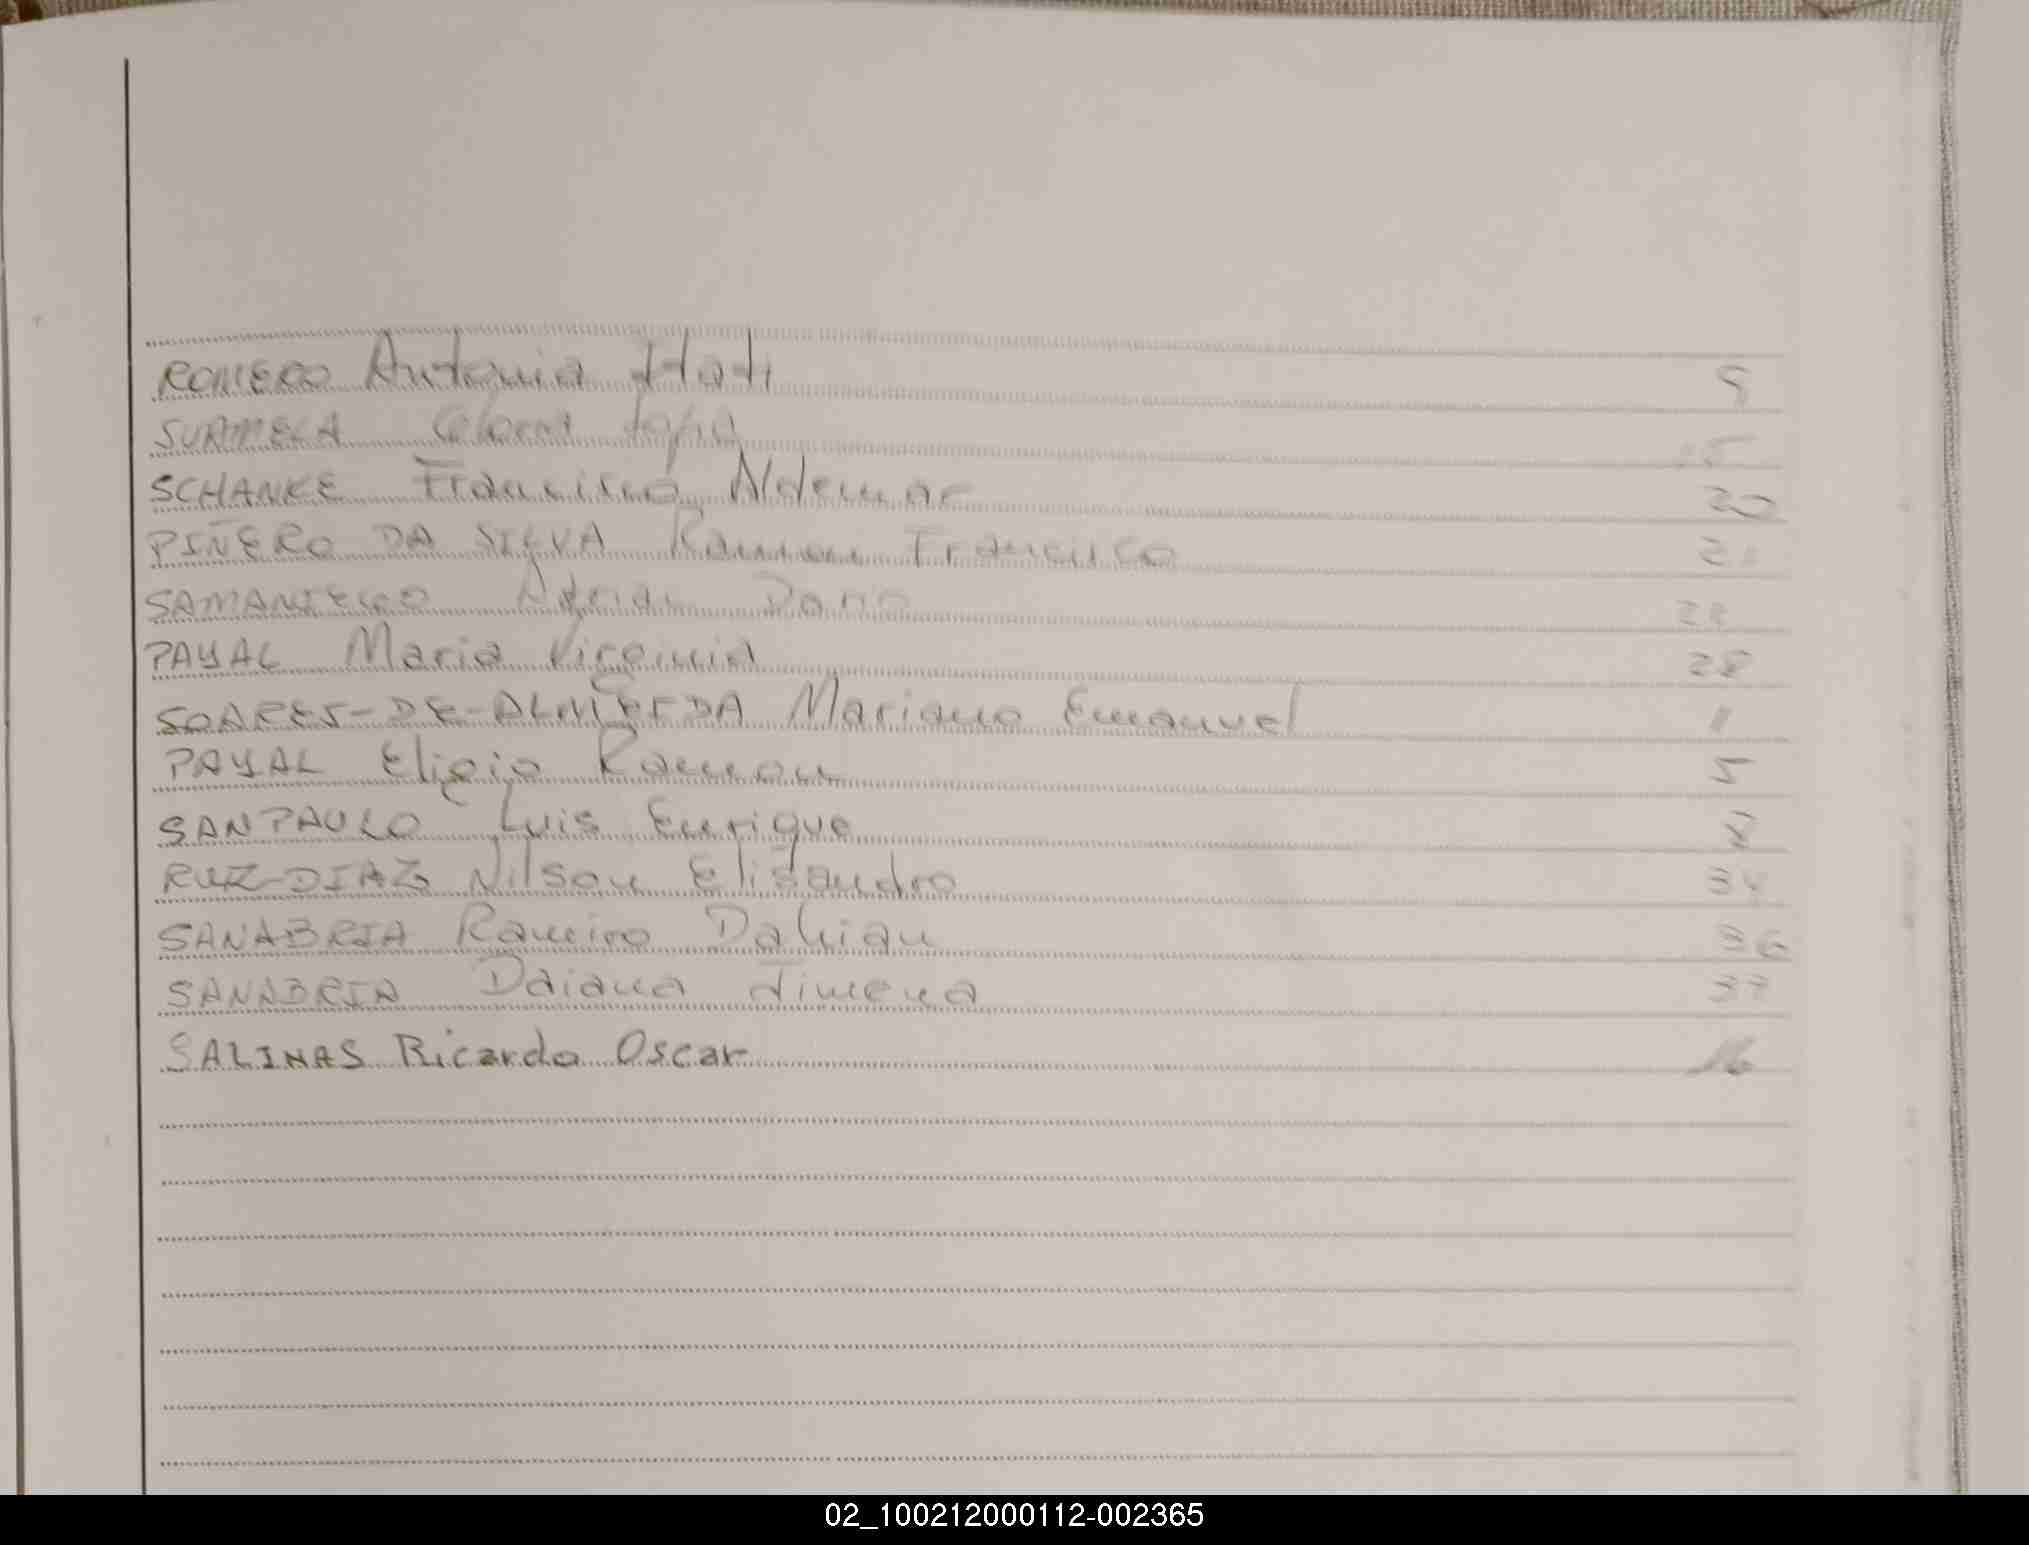 ROMERO Antonia Itatí 9
SURMELA Celeste Sofia
SCHANKE Francisco Aldemar 20
PIÑERO DA SILVA Ramon Francisco 21
SAMANIEGO Adrian Dario 22
PAYAL Maria Virginia 28
SOARES-DE-ALMEIDA Mariano Emanuel
PAYAL Eligio Ramon 5
SANPAULO Luis Enrique
RUIZ-DIAZ Nilson Elisandro 35
SANABRIA Ramiro Dahian 36
SANABRIA Daiana Jimena 37
SALINAS Ricardo Oscar 16
02_100212000112-002365